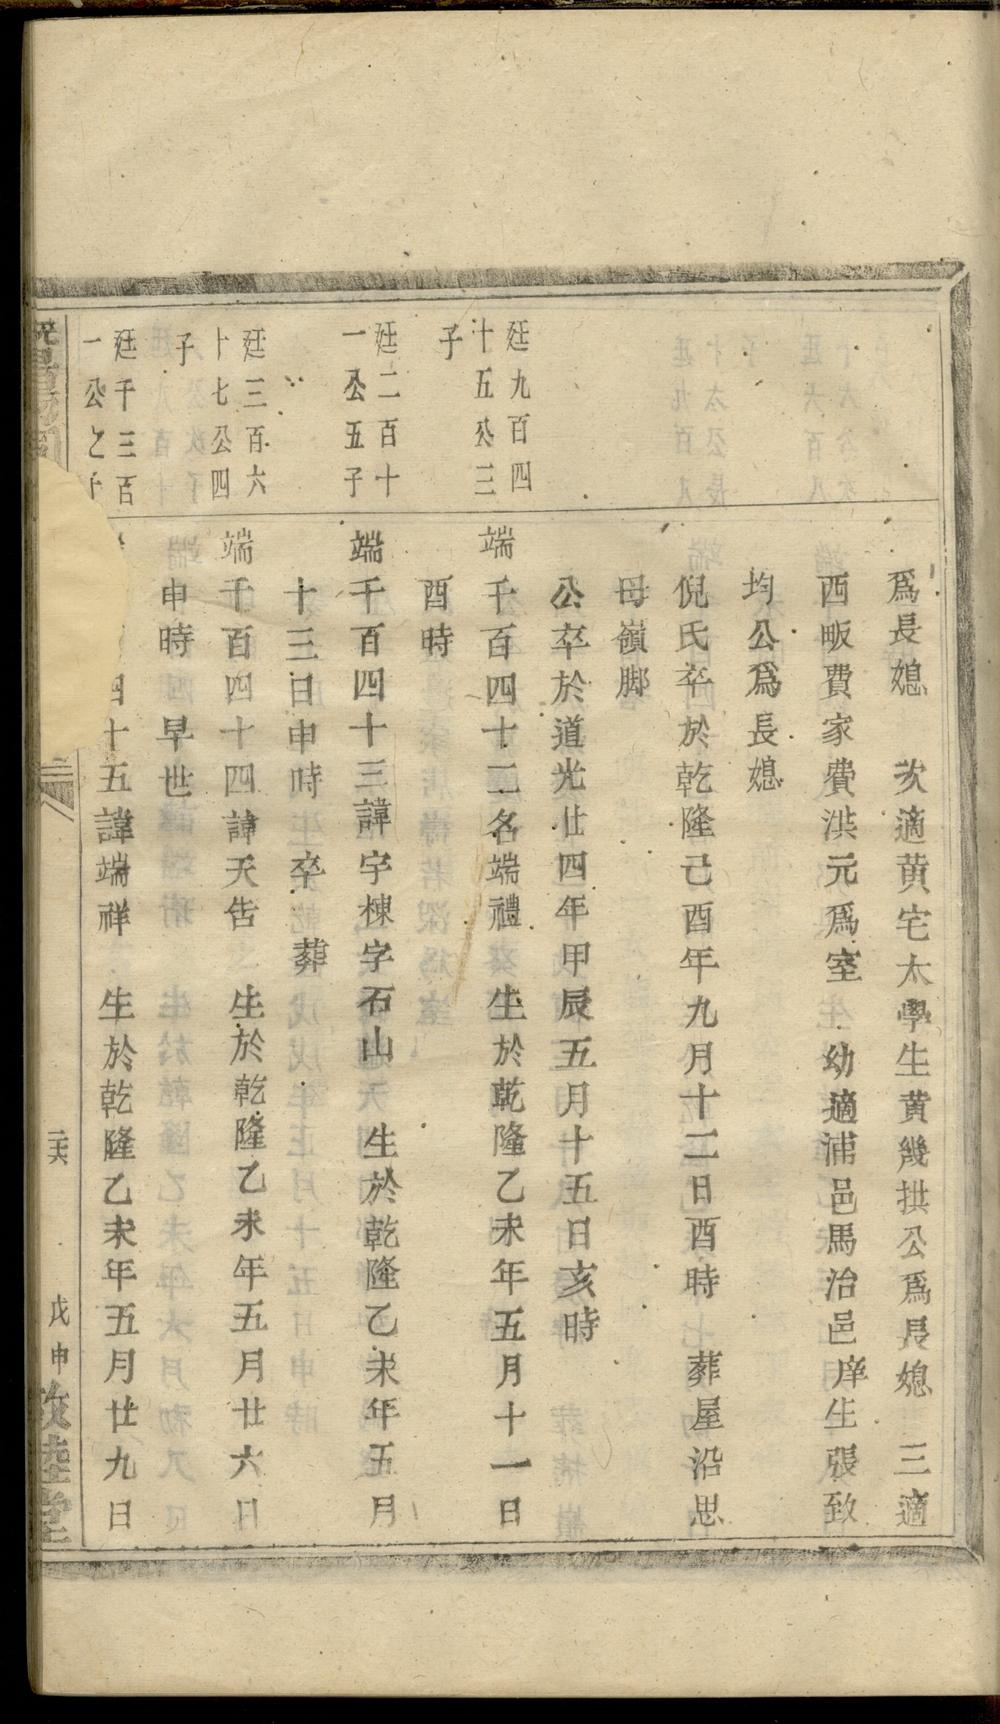 爲長媳　次適黄宅太學生黄幾拱公爲長媳　三適
西畈費家費洪元爲室　幼適浦邑馬治邑庠生張致
均公爲長媳
倪氏卒於乾隆己酉年九月十二日酉時　葬屋沿思
母嶺脚
公卒於道光廿四年甲辰五月十五日亥時
廷九百四
十五公三
子
端千百四十二名端禮　生於乾隆乙未年五月十一日
酉時
廷二百十
一公五子
端千百四十三諱宇棟字石山　生於乾隆乙未年五月
十三日申時　卒　葬
廷三百六
十七公四
子
端千百四十四諱天告　生於乾隆乙未年五月廿六日
申時　早世
廷千三百
一公之子
四十五諱端祥　生於乾隆乙未年五月廿九日
戊申敦睦堂